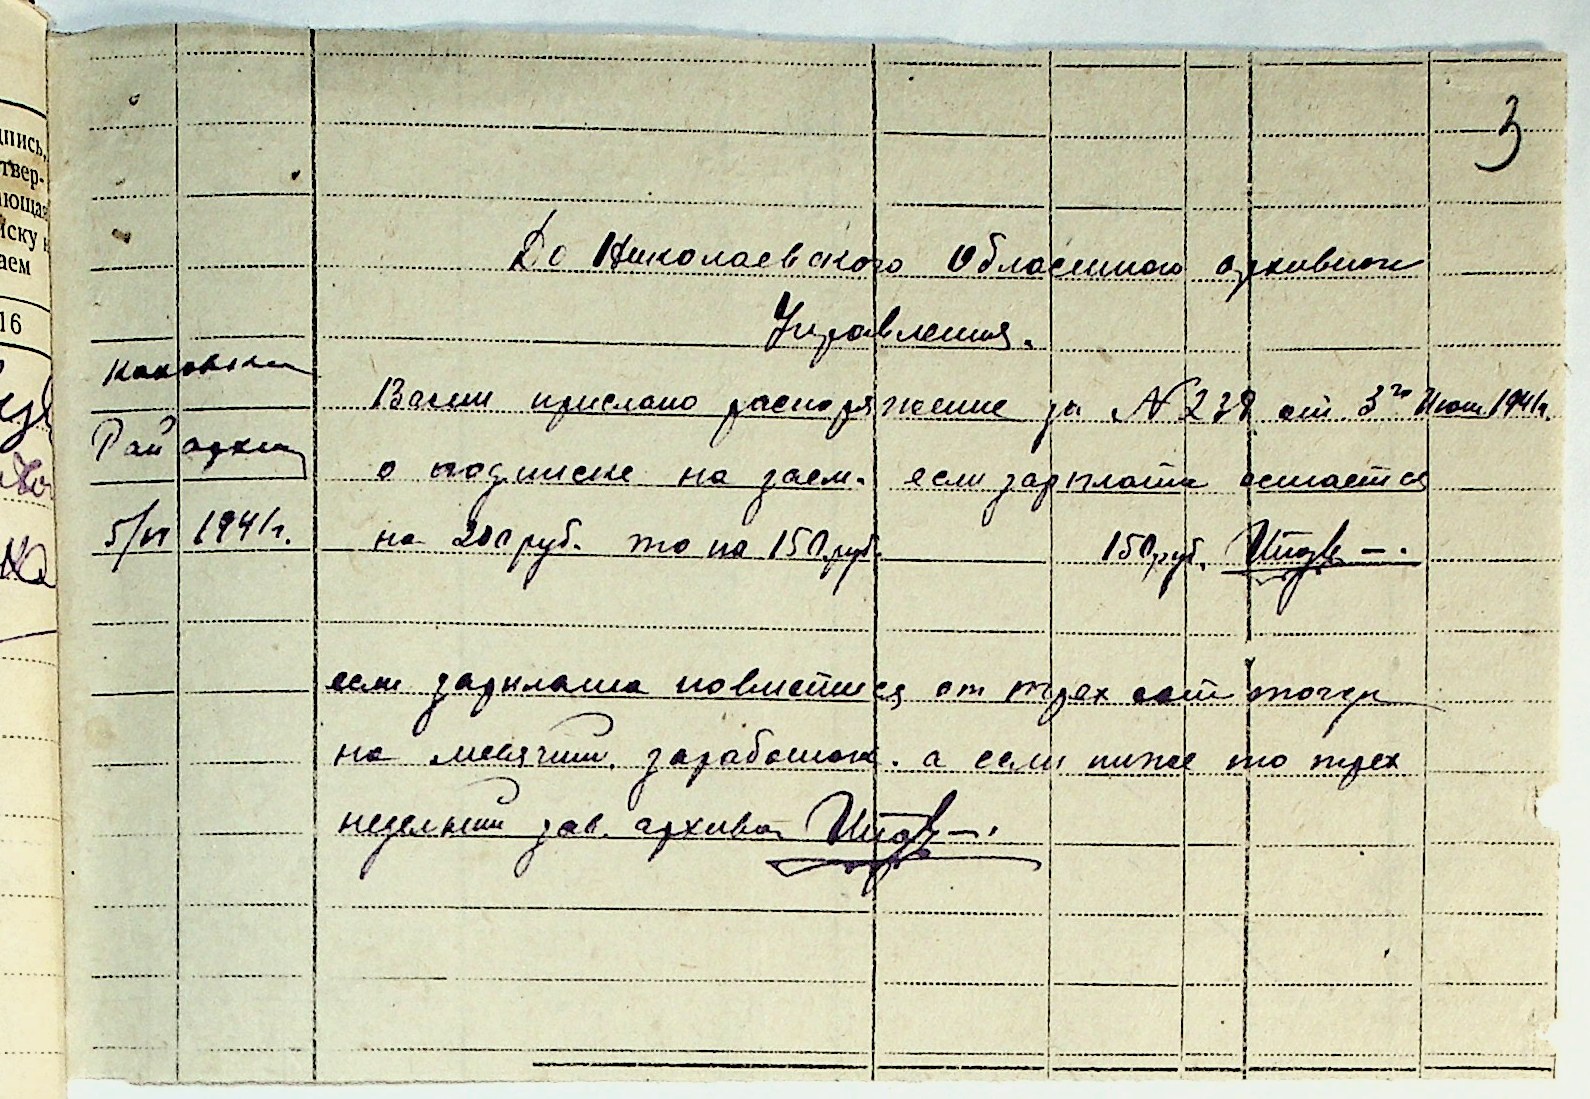 дпись,
твер-
ающая
иску н
аем
16
3
До Николаевского Областного архивного
Управления.
Рай архив
5/VI 1941г.
Вами прислано распоряжение за № 238 от 3го Июня 1941г.
о подписке на заем. если зарплата остается
на 200 руб. то на 150 руб. 150 руб.
если зарплата от трех сот
на месячний заработок. а если ниже то трех
недельний зав. архива